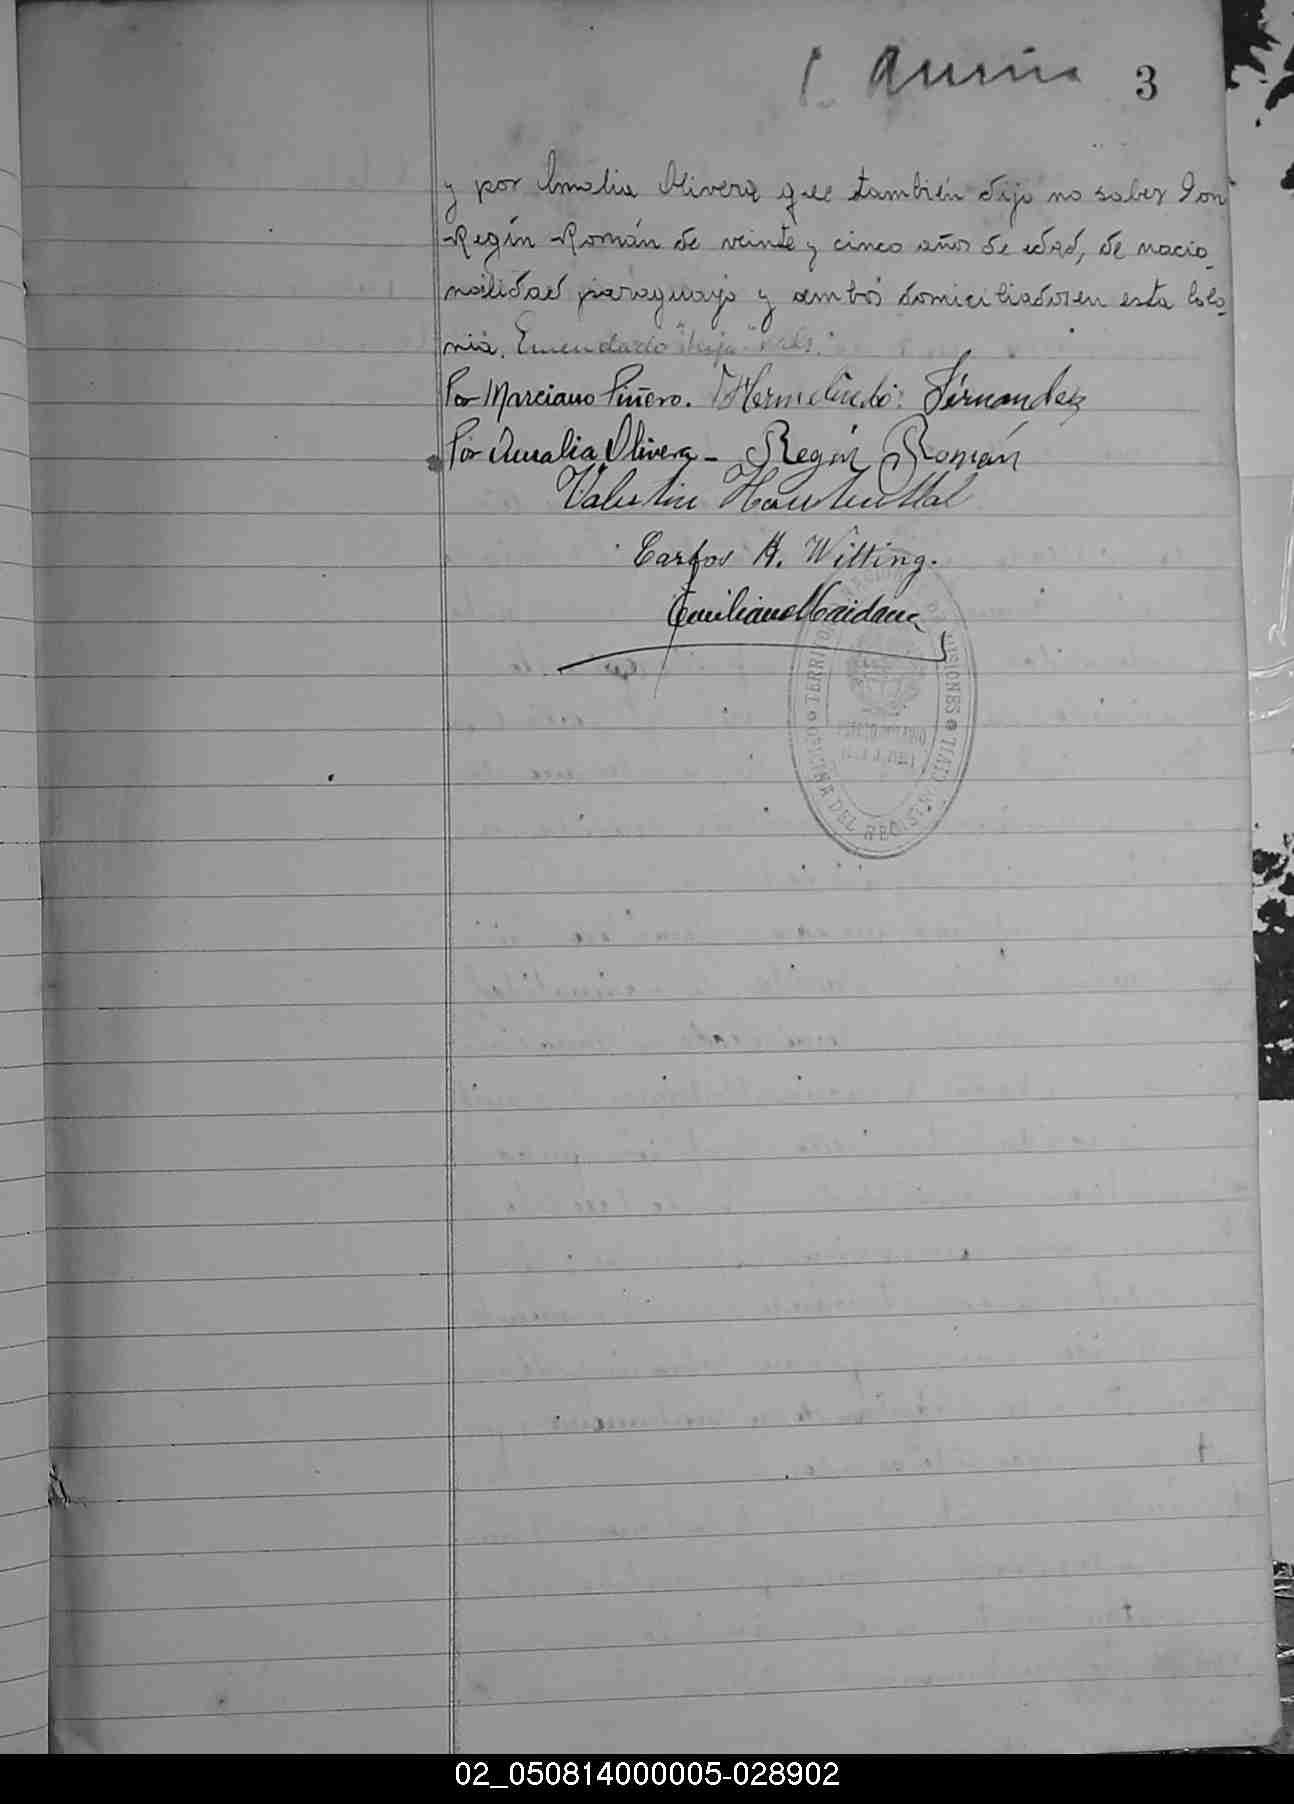 3
y por Amalia Olivera que también dijo no saber Don
Regin Román de veinte y cinco años de edad, de nacio-
nalidad paraguayo y ambos domiciliados en esta Colo-
nia. Enmendado "hija" vale.
Por Marciano Piñero. Hermelindo: Férnandez
Por Amalia Olivera - Regin Román
Valentin
Carlos H. Witting.
Emiliano Maidana
OFICINA DEL REGISTRO CIVIL
TERRITORIO DE MISIONES
02_050814000005-028902